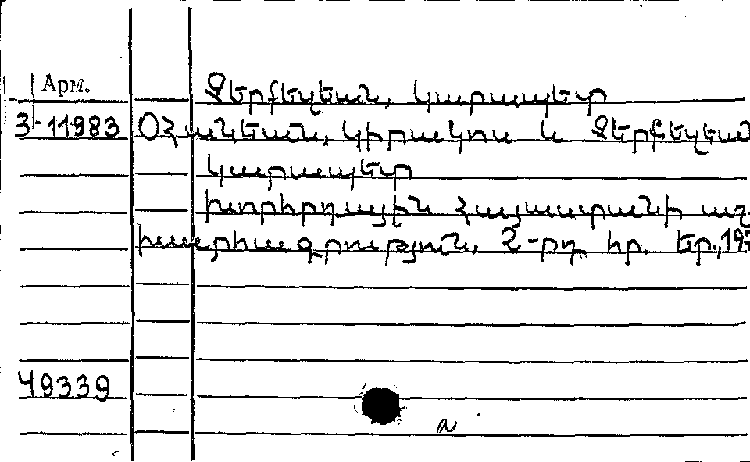 Арм.
Ջերբեզեան, Կարապետ
3-11983 Օհանեան, Կիրակոս և Ջերբեզեան
Կարապետ
Խորհրդային Հայաստանի աշ
խարհագրություն. 2-րդ հր. Եր., 19
49339